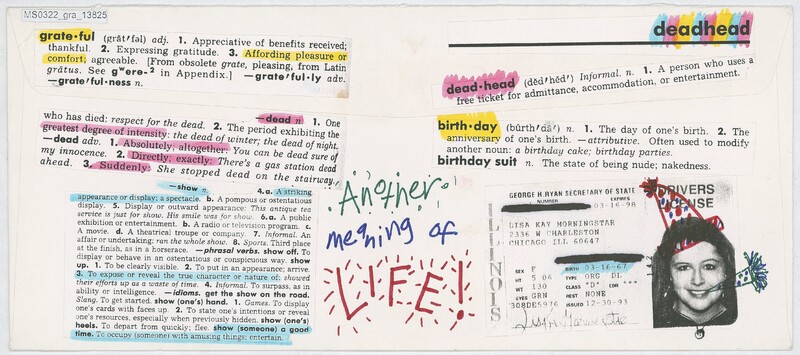 MS0322_gra_13825
grate·ful (grāt′fəl) adj. 1. Appreciative of benefits received;
thankful. 2. Expressing gratitude. 3. Affording pleasure or
comfort; agreeable. [From obsolete grate, pleasing, from Latin
grātus. See gʷere-² in Appendix.] —grate′ful·ly adv.
—grate′ful·ness n.
deadhead
dead·head (dĕd′hĕd′) Informal. n. 1. A person who uses a
free ticket for admittance, accommodation, or entertainment.
—dead n. 1. One
who has died: respect for the dead. 2. The period exhibiting the
greatest degree of intensity: the dead of winter; the dead of night.
—dead adv. 1. Absolutely; altogether: You can be dead sure of
my innocence. 2. Directly; exactly: There's a gas station dead
ahead. 3. Suddenly: She stopped dead on the stairway.
birth·day (bûrth′dā′) n. 1. The day of one's birth. 2. The
anniversary of one's birth. —attributive. Often used to modify
another noun: a birthday cake; birthday parties.
birthday suit n. The state of being nude; nakedness.
—show n. 4.a. A striking
appearance or display; a spectacle. b. A pompous or ostentatious
display. 5. Display or outward appearance: This antique tea
service is just for show. His smile was for show. 6.a. A public
exhibition or entertainment. b. A radio or television program. c.
A movie. d. A theatrical troupe or company. 7. Informal. An
affair or undertaking: ran the whole show. 8. Sports. Third place
at the finish, as in a horserace. —phrasal verbs. show off. To
display or behave in an ostentatious or conspicuous way. show
up. 1. To be clearly visible. 2. To put in an appearance; arrive.
3. To expose or reveal the true character or nature of: showed
their efforts up as a waste of time. 4. Informal. To surpass, as in
ability or intelligence. —idioms. get the show on the road.
Slang. To get started. show (one's) hand. 1. Games. To display
one's cards with faces up. 2. To state one's intentions or reveal
one's resources, especially when previously hidden. show (one's)
heels. To depart from quickly; flee. show (someone) a good
time. To occupy (someone) with amusing things; entertain.
Another
meaning of
LIFE!
ILLINOIS
GEORGE H. RYAN SECRETARY OF STATE
DRIVERS
LICENSE
NUMBER EXPIRES
03-16-98
LISA KAY MORNINGSTAR
2336 W CHARLESTON
CHICAGO ILL 60647
SEX F BIRTH 03-16-67
HT 5 06 TYPE ORG DL
WT 130 CLASS "D"
EYES GRN REST NONE
308DES976 ISSUED 12-30-93